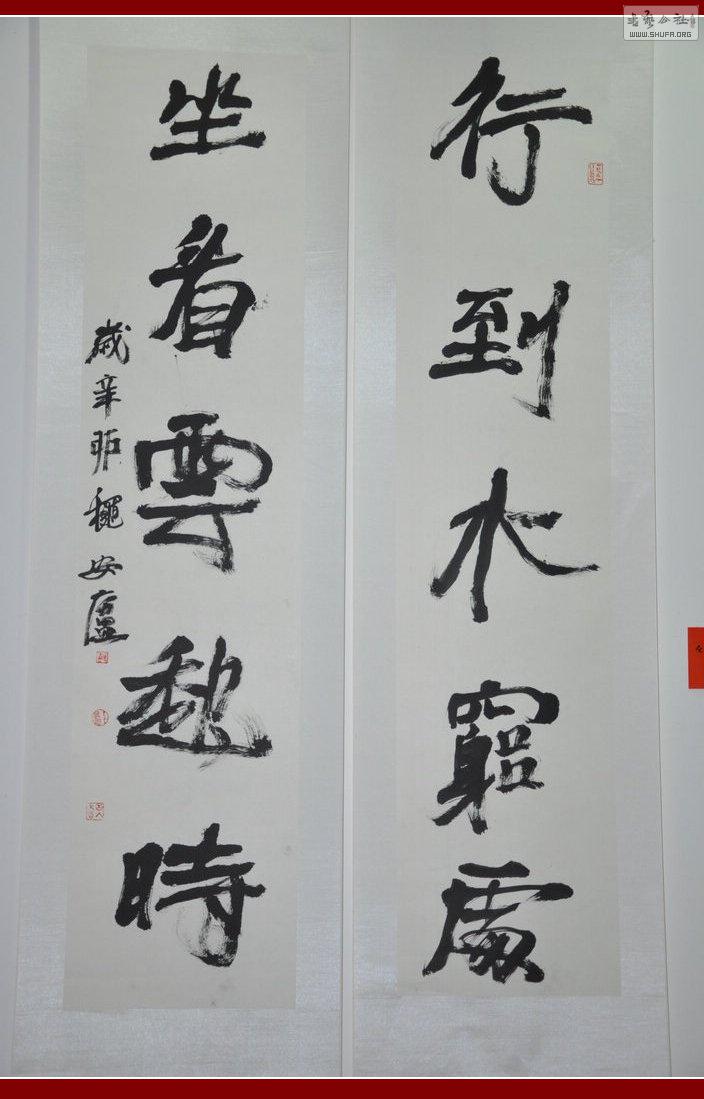 行到水竆處
坐看雲起時
歲辛卯穐安廬
书艺公社
WWW.SHUFA.ORG